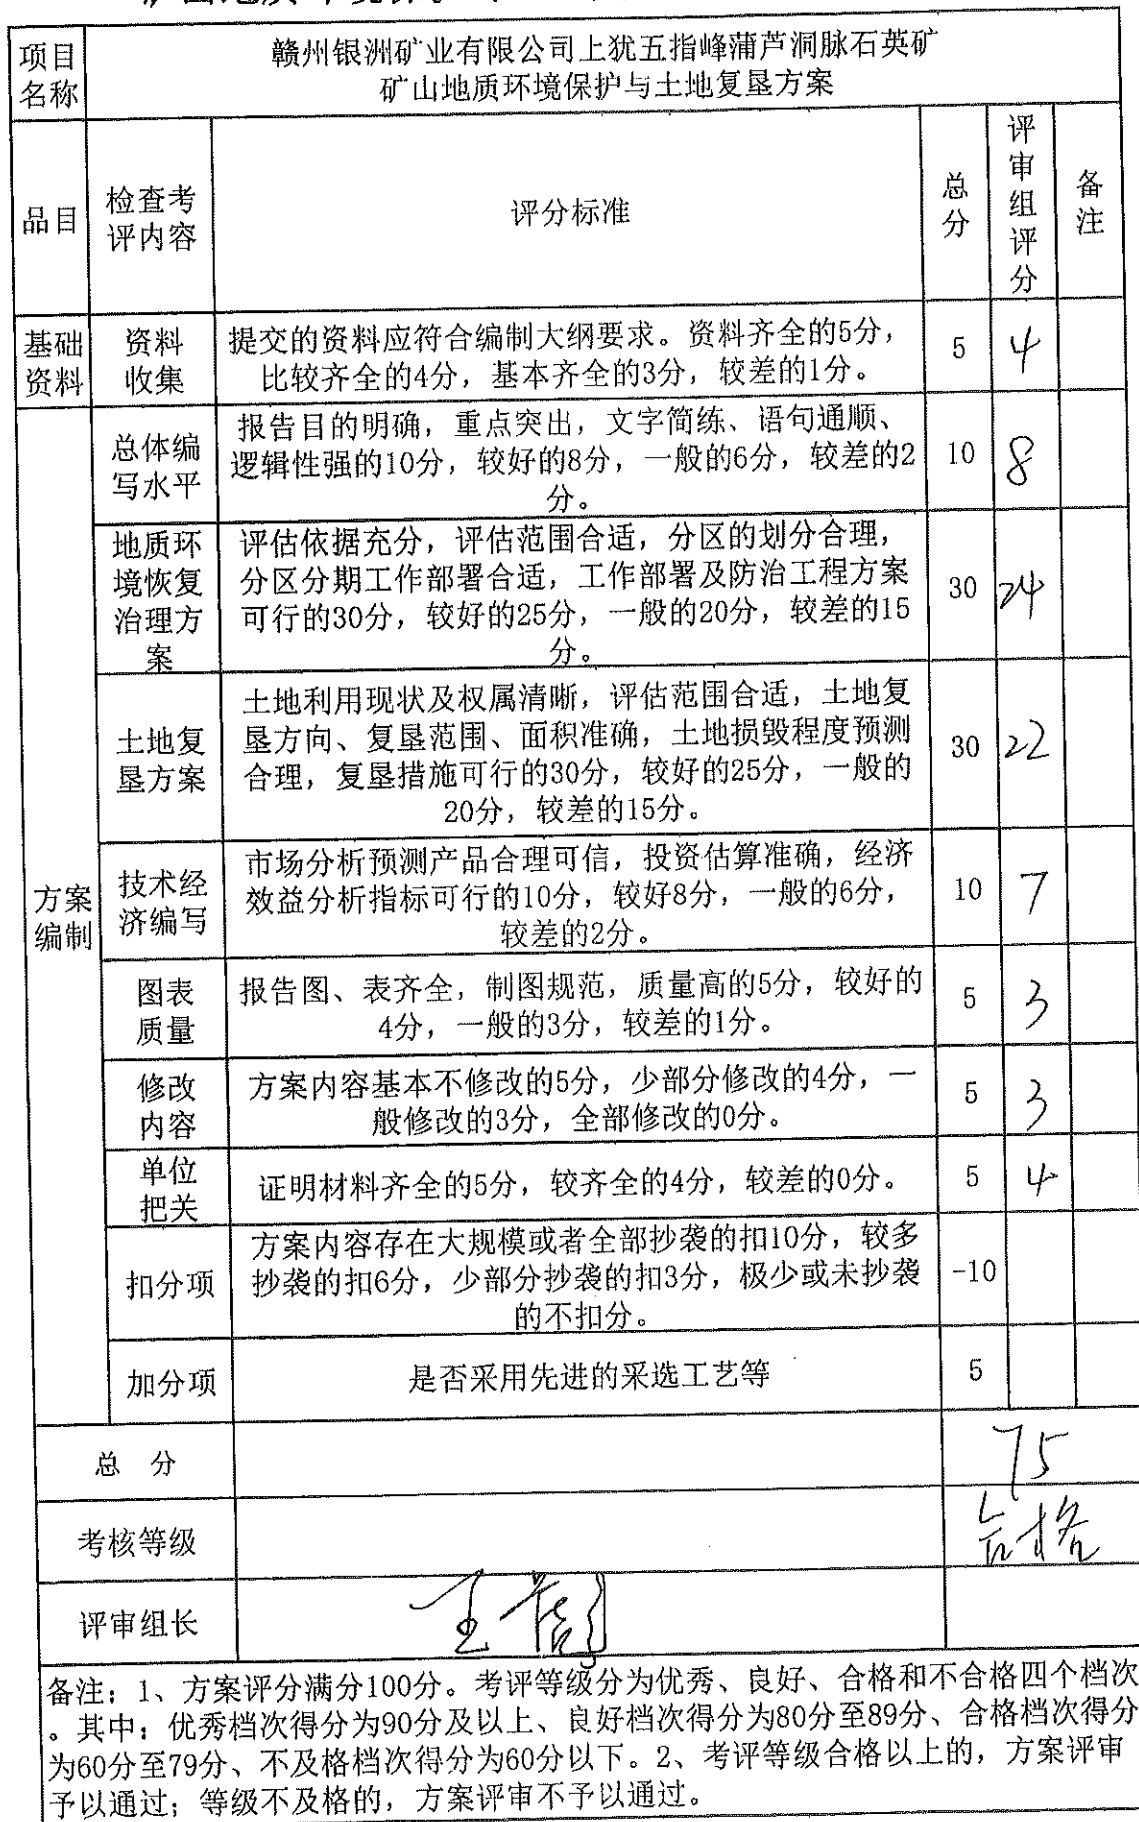 项目
名称
赣州银洲矿业有限公司上犹五指峰蒲芦洞脉石英矿
矿山地质环境保护与土地复垦方案
品目
检查考
评内容
评分标准
总
分
评
审
组
评
分
备
注
基础
资料
资料
收集
提交的资料应符合编制大纲要求。资料齐全的5分，
比较齐全的4分，基本齐全的3分，较差的1分。
5
4
方案
编制
总体编
写水平
报告目的明确，重点突出，文字简练、语句通顺、
逻辑性强的10分，较好的8分，一般的6分，较差的2
分。
10
8
地质环
境恢复
治理方
案
评估依据充分，评估范围合适，分区的划分合理，
分区分期工作部署合适，工作部署及防治工程方案
可行的30分，较好的25分，一般的20分，较差的15
分。
30
24
土地复
垦方案
土地利用现状及权属清晰，评估范围合适，土地复
垦方向、复垦范围、面积准确，土地损毁程度预测
合理，复垦措施可行的30分，较好的25分，一般的
20分，较差的15分。
30
22
技术经
济编写
市场分析预测产品合理可信，投资估算准确，经济
效益分析指标可行的10分，较好8分，一般的6分，
较差的2分。
10
7
图表
质量
报告图、表齐全，制图规范，质量高的5分，较好的
4分，一般的3分，较差的1分。
5
3
修改
内容
方案内容基本不修改的5分，少部分修改的4分，一
般修改的3分，全部修改的0分。
5
3
单位
把关
证明材料齐全的5分，较齐全的4分，较差的0分。
5
4
扣分项
方案内容存在大规模或者全部抄袭的扣10分，较多
抄袭的扣6分，少部分抄袭的扣3分，极少或未抄袭
的不扣分。
-10
加分项
是否采用先进的采选工艺等
5
总 分
75
考核等级
合格
评审组长
备注：1、方案评分满分100分。考评等级分为优秀、良好、合格和不合格四个档次
。其中：优秀档次得分为90分及以上、良好档次得分为80分至89分、合格档次得分
为60分至79分、不及格档次得分为60分以下。2、考评等级合格以上的，方案评审
予以通过；等级不及格的，方案评审不予以通过。